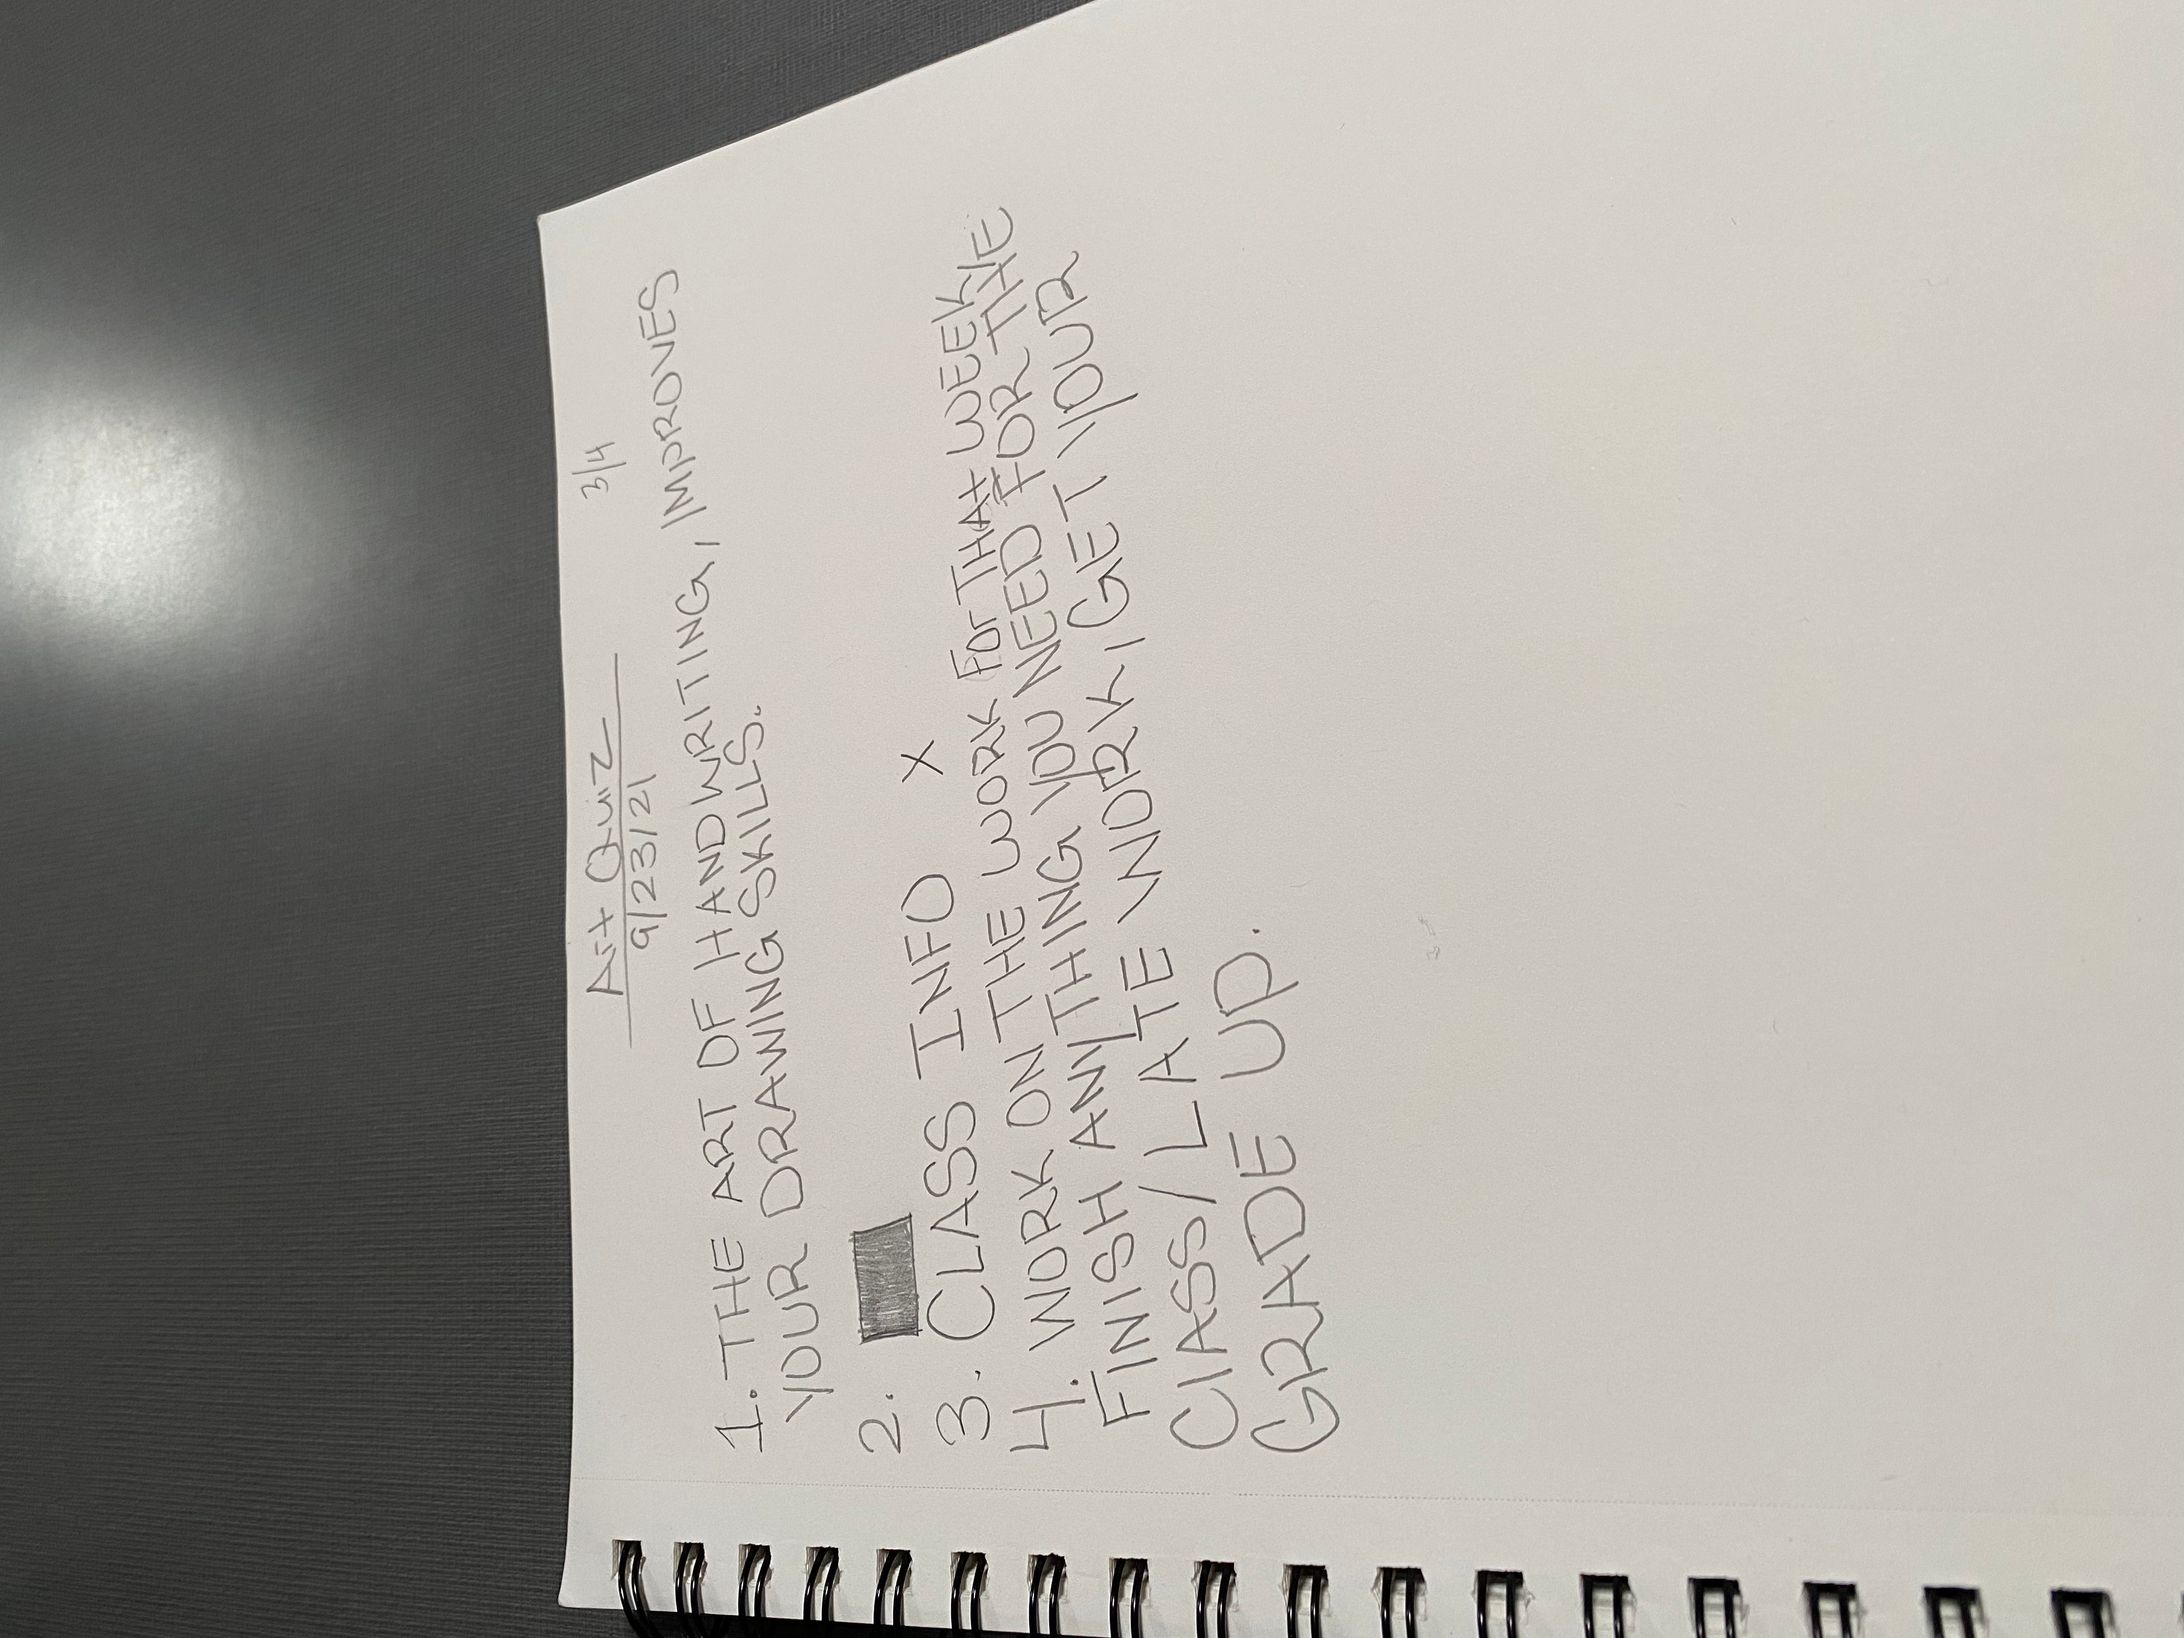 Art Quiz
3/4
9/23/21
1. THE ART OF HANDWRITING, IMPROVES
YOUR DRAWING SKILLS.
2.
3. CLASS INFO X
4. WORK ON THE WORK For THAt WEEK/
FINISH ANYTHING YOU NEED FOR THE
ClASS/LATE WORK/GET YOUR
GRADE UP.